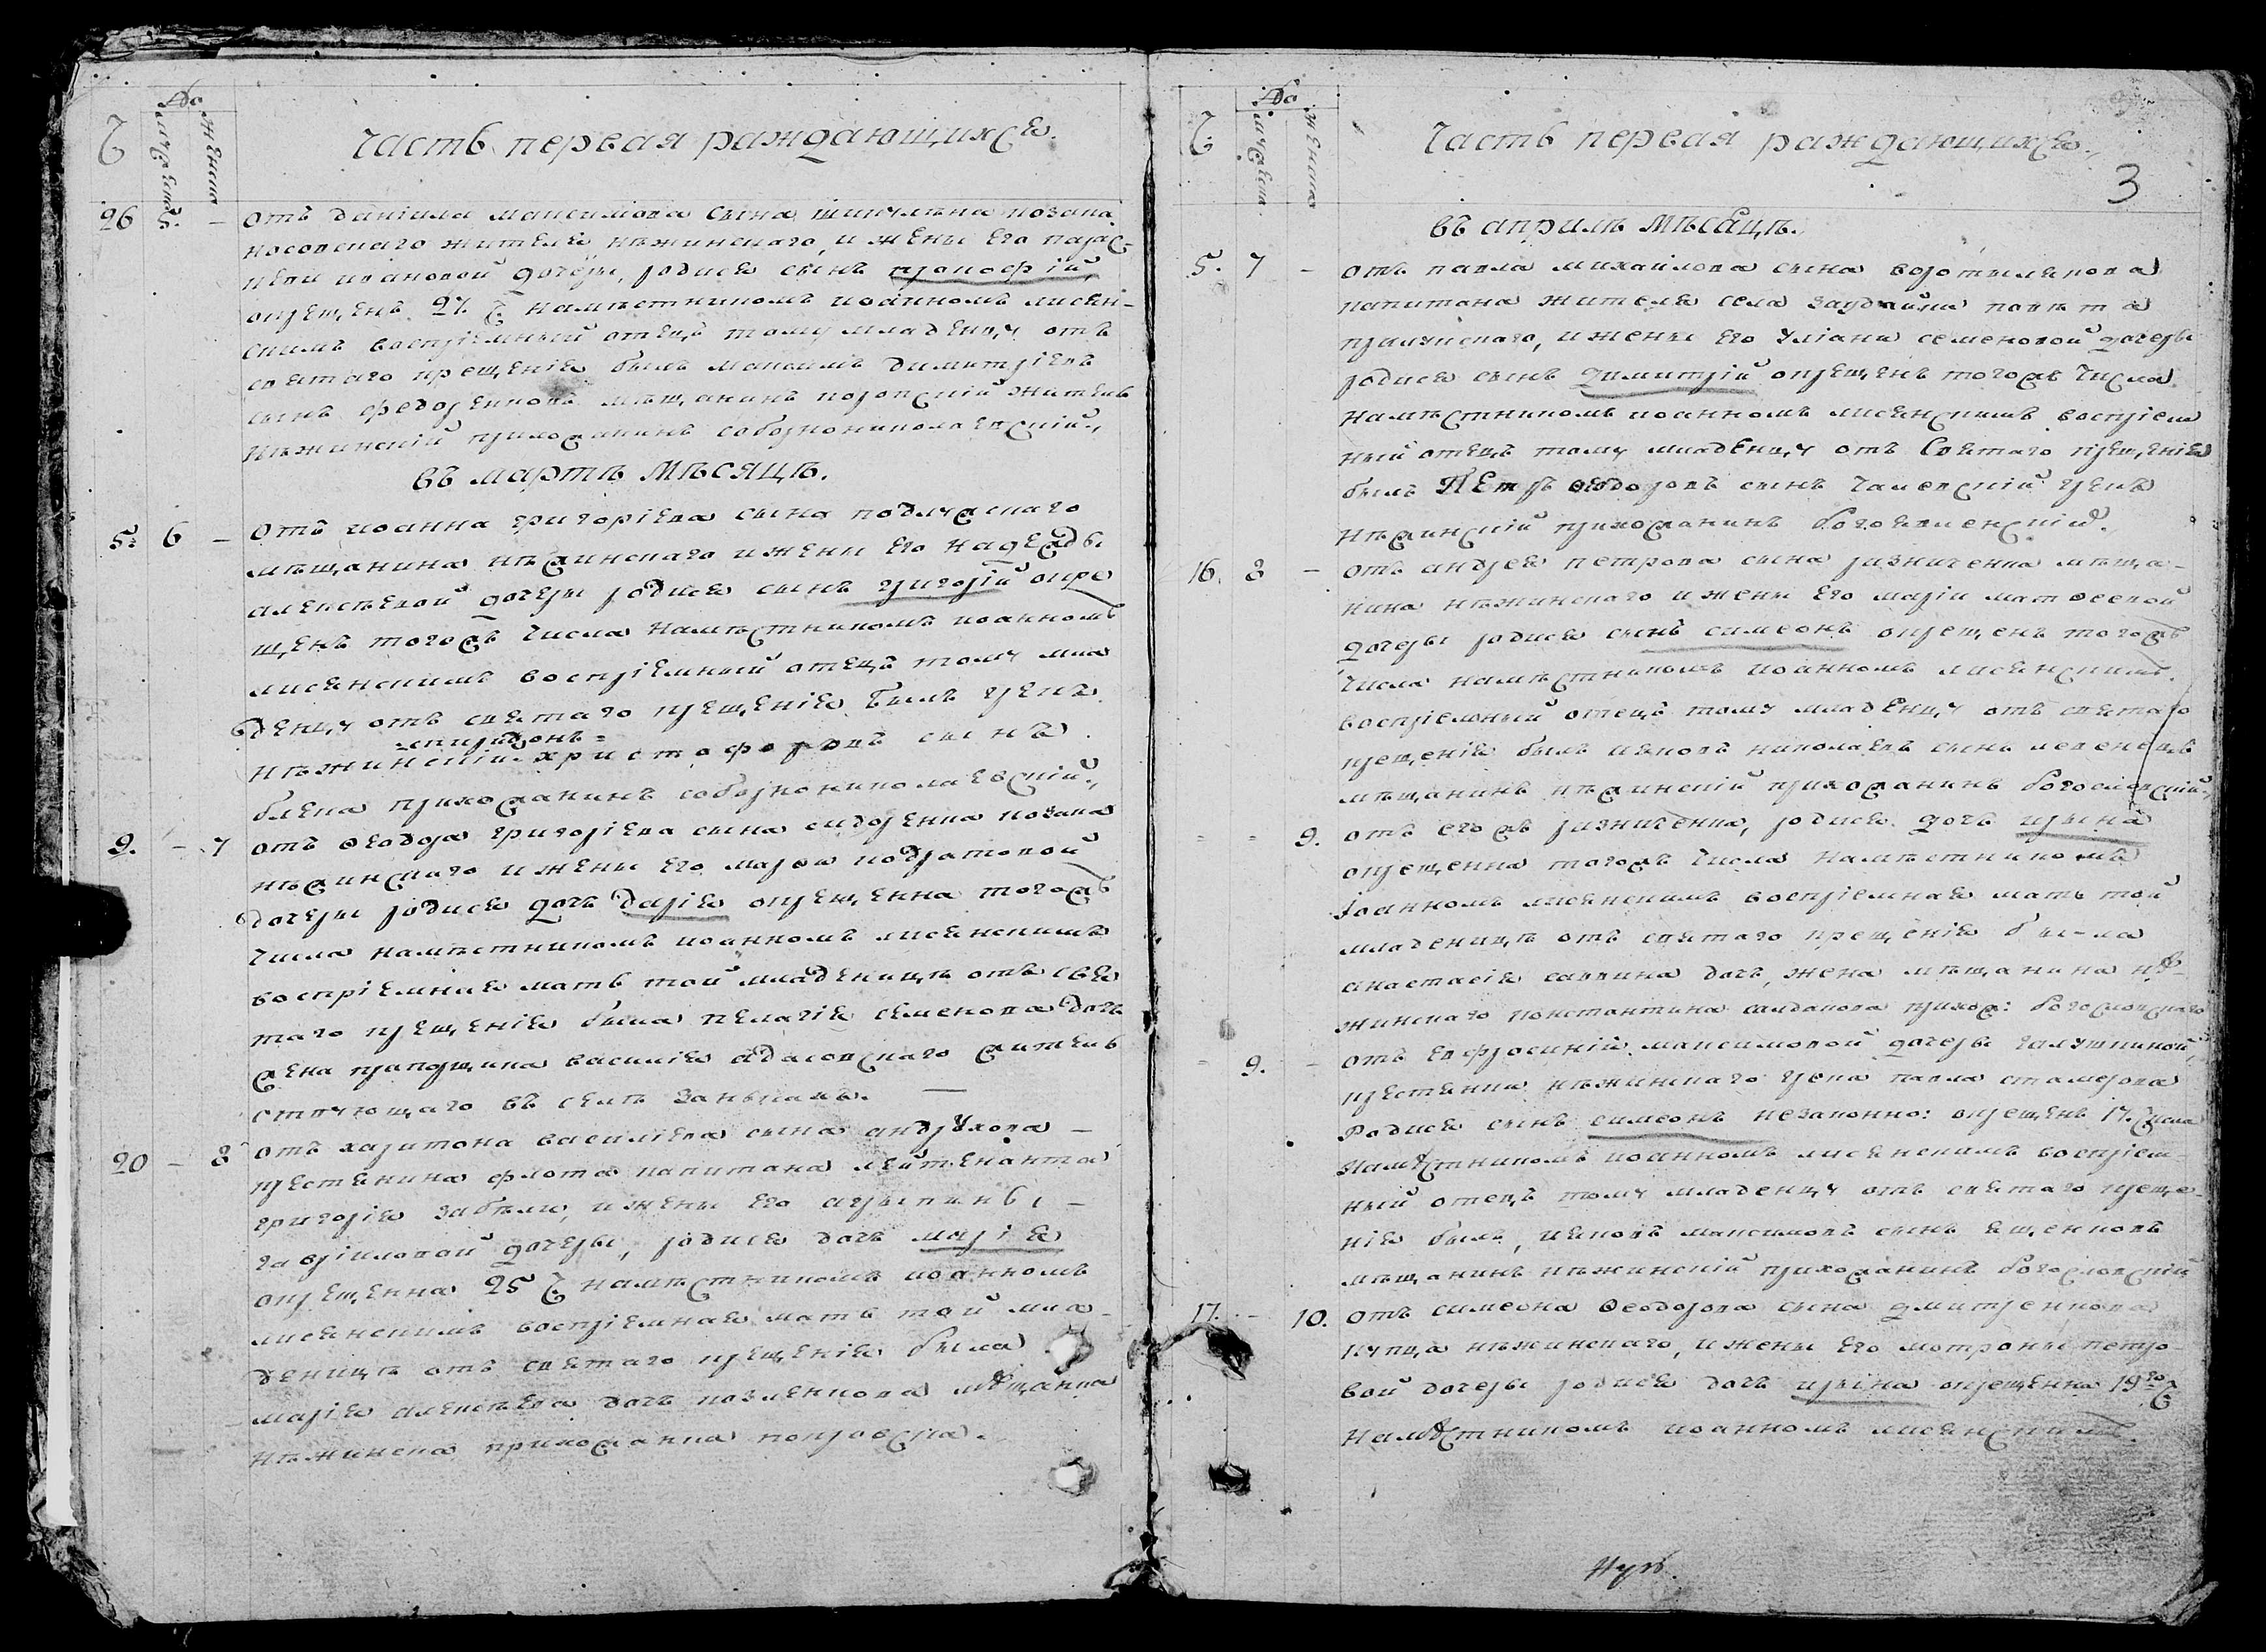 Часть первая раждающихся.
26 5. – отъ даніила максимова сына шикулѣна козака
носовскаго жителя нѣжинскаго, и жены его парас-
кеви ивановой дочеры, родися сынъ прокофій,
окрещенъ 27. Ч намѣстникомъ иоанномъ лисѣн-
скимъ воспріемный отецъ тому младенцу отъ
святаго крещенія былъ максимъ димитріевъ
сынъ федоренковъ мѣщанинъ коропскій житель
нѣжинскій прихожанинъ соборнониколаевскій.
въ мартѣ мѣсяцѣ.
5: 6 – Отъ иоанна григоріева сына
мѣщанина нѣжинскаго и жены его надежды
алексѣевой дочеры родися сынъ григорій окре
щенъ тогожъ числа намѣстникомъ иоанномъ
лисѣнскимъ воспріемный отецъ тому мла
денцу отъ святаго крещенія былъ грекъ
=спиридонъ=
нѣжинскій христофоровъ сынъ
прихожанинъ соборнониколаевскій.
9. – 7 отъ феодора григоріева сына сидоренка козака
нѣжинскаго и жены его марфы кодратовой
дочеры родися дочь дарія окрещенна тогожъ
числа намѣстникомъ иоанномъ лисѣнскимъ
воспріемная мать той младеницѣ отъ свя
таго крещенія была пелагія семенова дочь
жена прапорщика василія адасовскаго жительс
ствующаго въ селѣ заньками.
20 – 8 отъ харитона василіева сына андрухова –
крестянина флота капитана лейтенанта
григорія забѣлы, и жены его агрыпины –
гавріиловой дочеры, родися дочь марія
окрещенна 25 Ч. намѣстникомъ иоанномъ
лисѣнскимъ воспріемная мать той мла-
деницѣ отъ святаго крещенія была
марія алексѣева дочь козленкова мѣщанка
нѣжинска прихожанка покровска.
Часть первая раждающихся.
3
въ априлѣ мѣсяцѣ.
5. 7 – отъ павла михайлова сына
капитана жителя села заудайки повѣта
прилуцкаго, и жены его уліаны семеновой дочеры
родися сынъ димитрій окрещенъ тогожъ числа
намѣстникомъ иоанномъ лисѣнскимъ воспріем
ный отецъ тому младенцу отъ святаго крещенія
былъ Петръ феодоровъ сынъ грекъ
нѣжинскій прихожанинъ богоявленскій.
16. 8 – отъ андрея петрова сына резниченка мѣща-
нина нѣжинскаго и жены его маріи матфеевой
дочеры родися сынъ симеонъ окрещенъ тогожъ
числа намѣстникомъ иоанномъ лисѣнскимъ.
воспріемный отецъ тому младенцу отъ святаго
крещенія былъ иаковъ николаевъ сынъ
мѣщанинъ нѣжинскій прихожанинъ богословскій,
= = 9. отъ егожъ резниченка, родися дочь ирына
окрещенна тогожъ числа намѣстникомъ
Іоанномъ лисѣнскимъ воспріемная мать той
младеницѣ отъ святаго крещенія бы-ла
анастасія саввина дочь, жена мѣщанина нѣ-
жинскаго константина прихож: богословскаго
= 9. – отъ евфросиніи максимовой дочеры галушкиной,
крестянки нѣжинскаго грека павла стамерова
Родися сынъ симеонъ незаконно: окрещенъ 17. числа
намѣстникомъ иоанномъ лисѣнскимъ воспріем-
ный отецъ тому младенцу отъ святаго креще-
нія былъ, иаковъ максимовъ сынъ ященковъ
мѣщанинъ нѣжинскій прихожанинъ богословскій
17. – 10. отъ симеона Феодорова сына дмитренкова
купца нѣжинскаго, и жены его мотроны петро-
вой дочеры родися дочь ирына окрещенна 19го Ч
намѣстникомъ иоанномъ лисѣнскимъ.